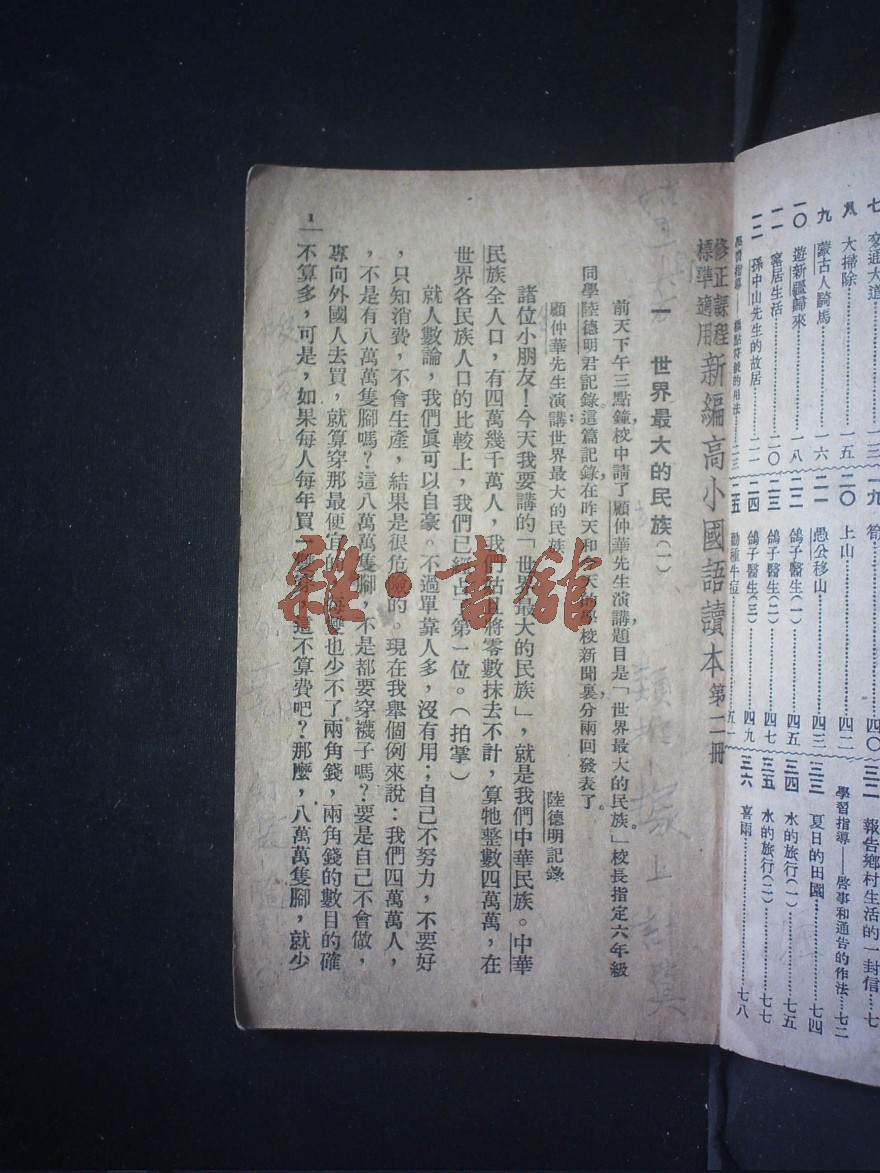 七 交通大道……一三
八 大掃除……一五
九 蒙古人騎馬……一六
一〇 遊新疆歸來……一八
一一 寓居生活……二〇
一二 孫中山先生的故居……二一
一九 筍……四〇
二〇 上山……四二
二一 愚公移山……四三
二二 鴿子醫生(一)……四五
二三 鴿子醫生(二)……四七
二四 鴿子醫生(三)……四九
二五 勸種牛痘……五一
三二 報告鄉村生活的一封信……七
學習指導——啓事和通告的作法……七二
三三 夏日的田園……七四
三四 水的旅行(一)……七五
三五 水的旅行(二)……七七
三六 喜雨……七八
修正課程
標準適用
新編高小國語讀本第二冊
一 世界最大的民族(一)
前天下午三點鐘,校中請了顧仲華先生演講,題目是「世界最大的民族。」校長指定六年級
同學陸德明君記錄;這篇記錄在昨天和天的學校新聞裏,分兩回發表了。
顧仲華先生演講:世界最大的民族
陸德明記錄
諸位小朋友!今天我要講的「世界最大的民族」,就是我們中華民族。中華
民族全人口,有四萬幾千萬人,我們姑且將零數抹去不計,算牠整數四萬萬,在
世界各民族人口的比較上,我們已經占了第一位。(拍掌)
就人數論,我們眞可以自豪。不過單靠人多,沒有用;自己不努力,不要好
,只知消費,不會生產,結果是很危險的。現在我舉個例來說:我們四萬萬人,
,不是有八萬萬隻腳嗎?這八萬萬隻腳,不是都要穿襪子嗎?要是自己不會做,
專向外國人去買,就算穿那最便宜的,每雙也少不了兩角錢,兩角錢的數目的確
不算多,可是,如果每人每年買一雙穿,這不算費吧?那麼,八萬萬隻腳,就少
1
雜·書館